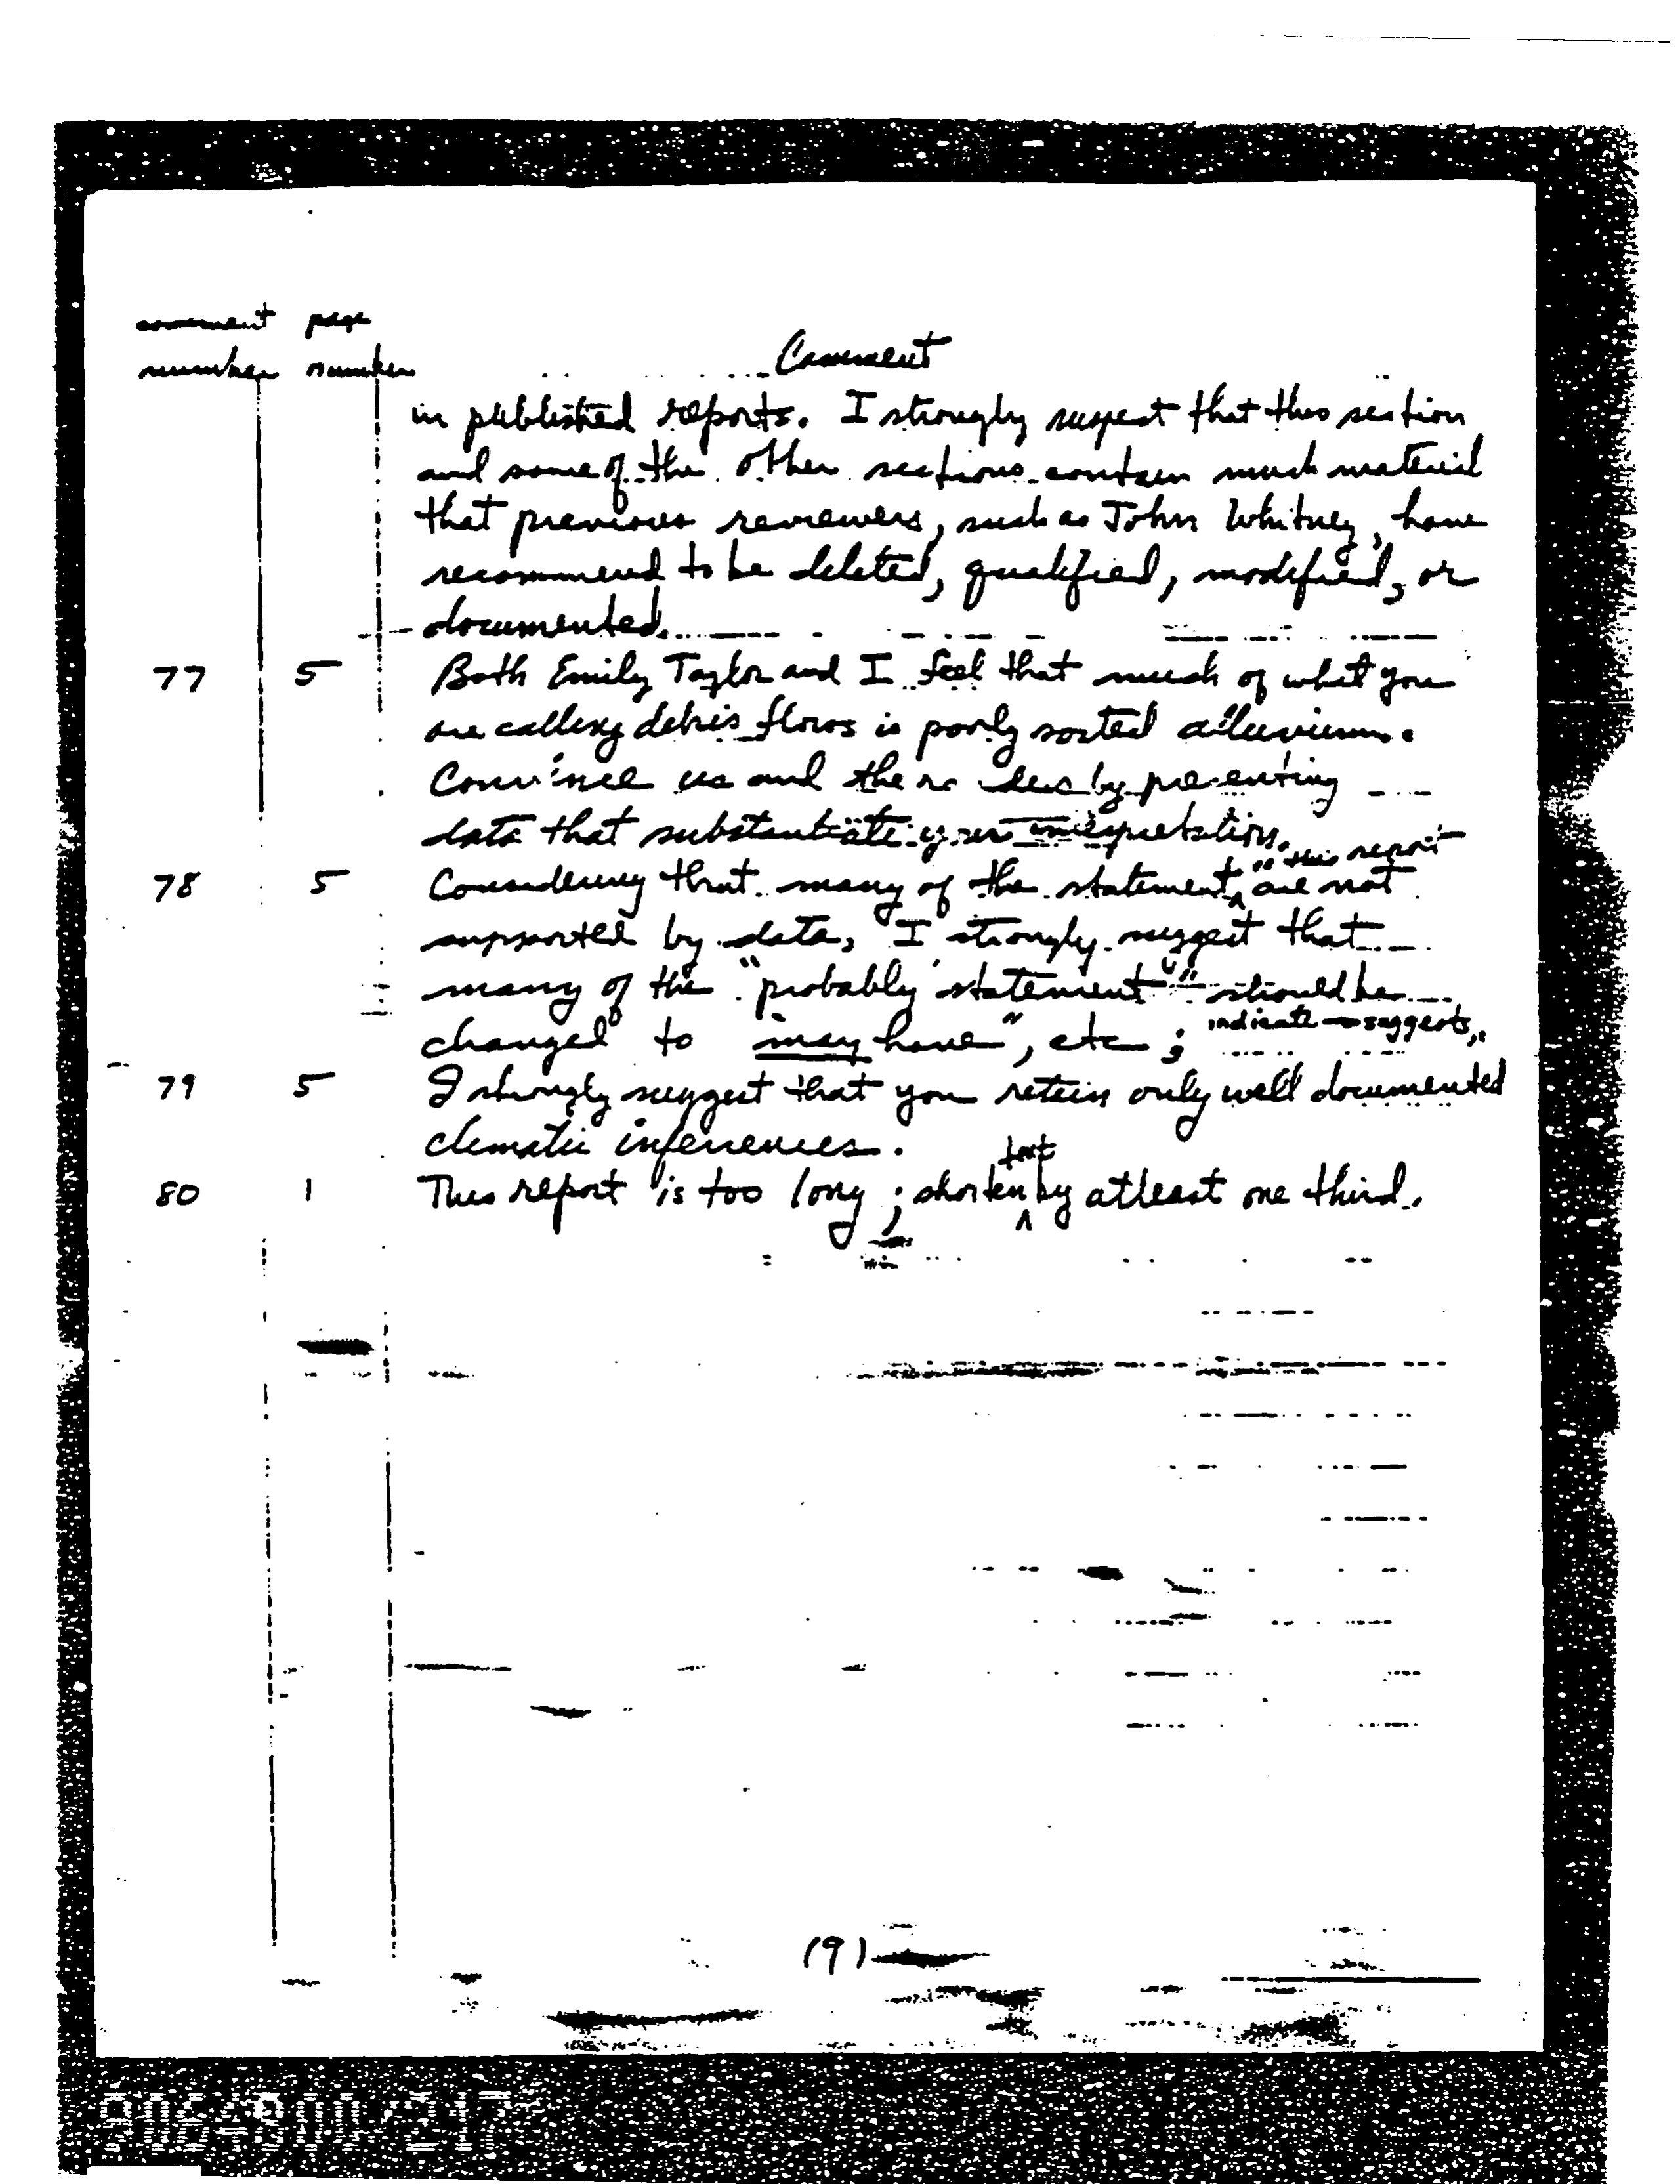 comment page
number number Comment
in published reports. I strongly suspect that this section
and some of the other sections contain much material
that previous reviewers, such as John Whitney, have
recommend to be deleted, qualified, modified, or
documented.
77 5 Both Emily Taylor and I feel that much of what you
are calling debris flows is poorly sorted alluvium.
Convince us and the by presenting
data that substantiate your interpretation.
this report
78 5 Considering that many of the statement are not
supported by data, I strongly suggest that
many of the "probably statement" should be
changed to "may have", etc; indicate → suggests,
79 5 I strongly suggest that you retain only well documented
climatic inferences.
text
80 1 This report is too long; shorten by at least one third.
(9)